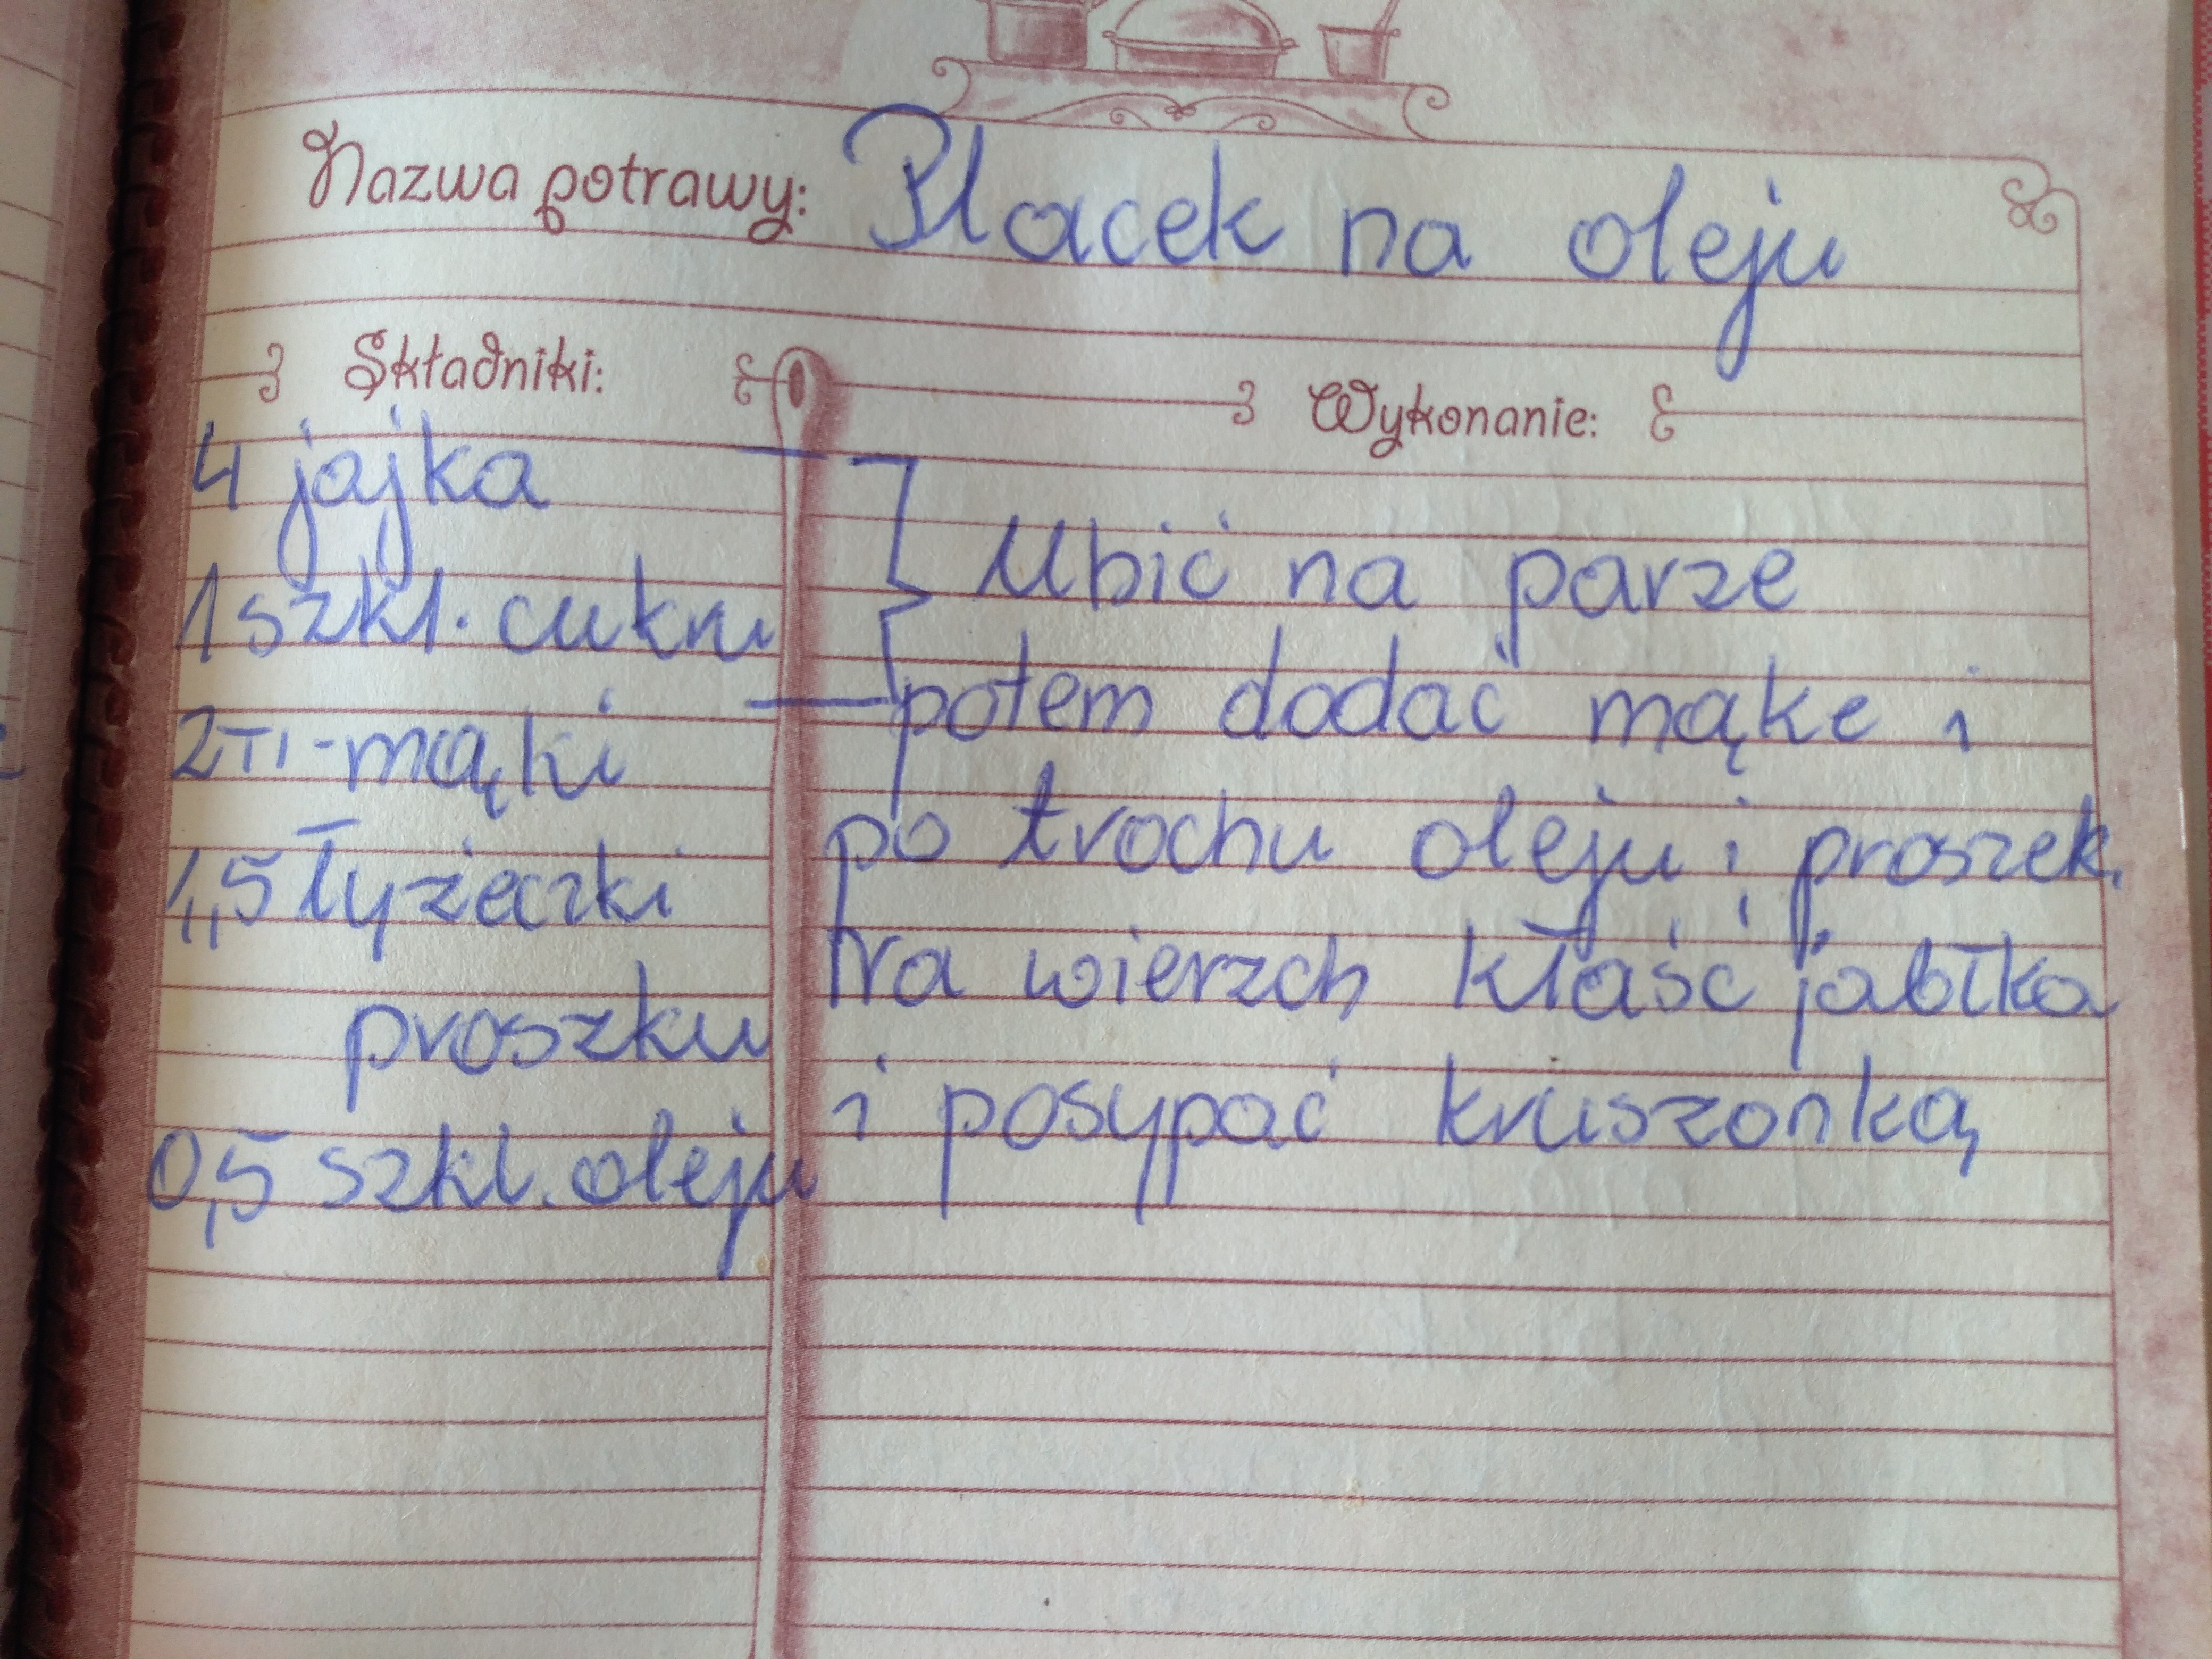 Nazwa potrawy: Placek na oleju
Składniki:
4 jajka
1 szkl. cukru
2 -||- mąki
1,5 łyżeczki
proszku
0,5 szkl. oleju
Wykonanie:
Ubić na parze
potem dodać mąke i
po trochu oleju i proszek.
Na wierzch kłaść jabłka
i posypać kruszonką